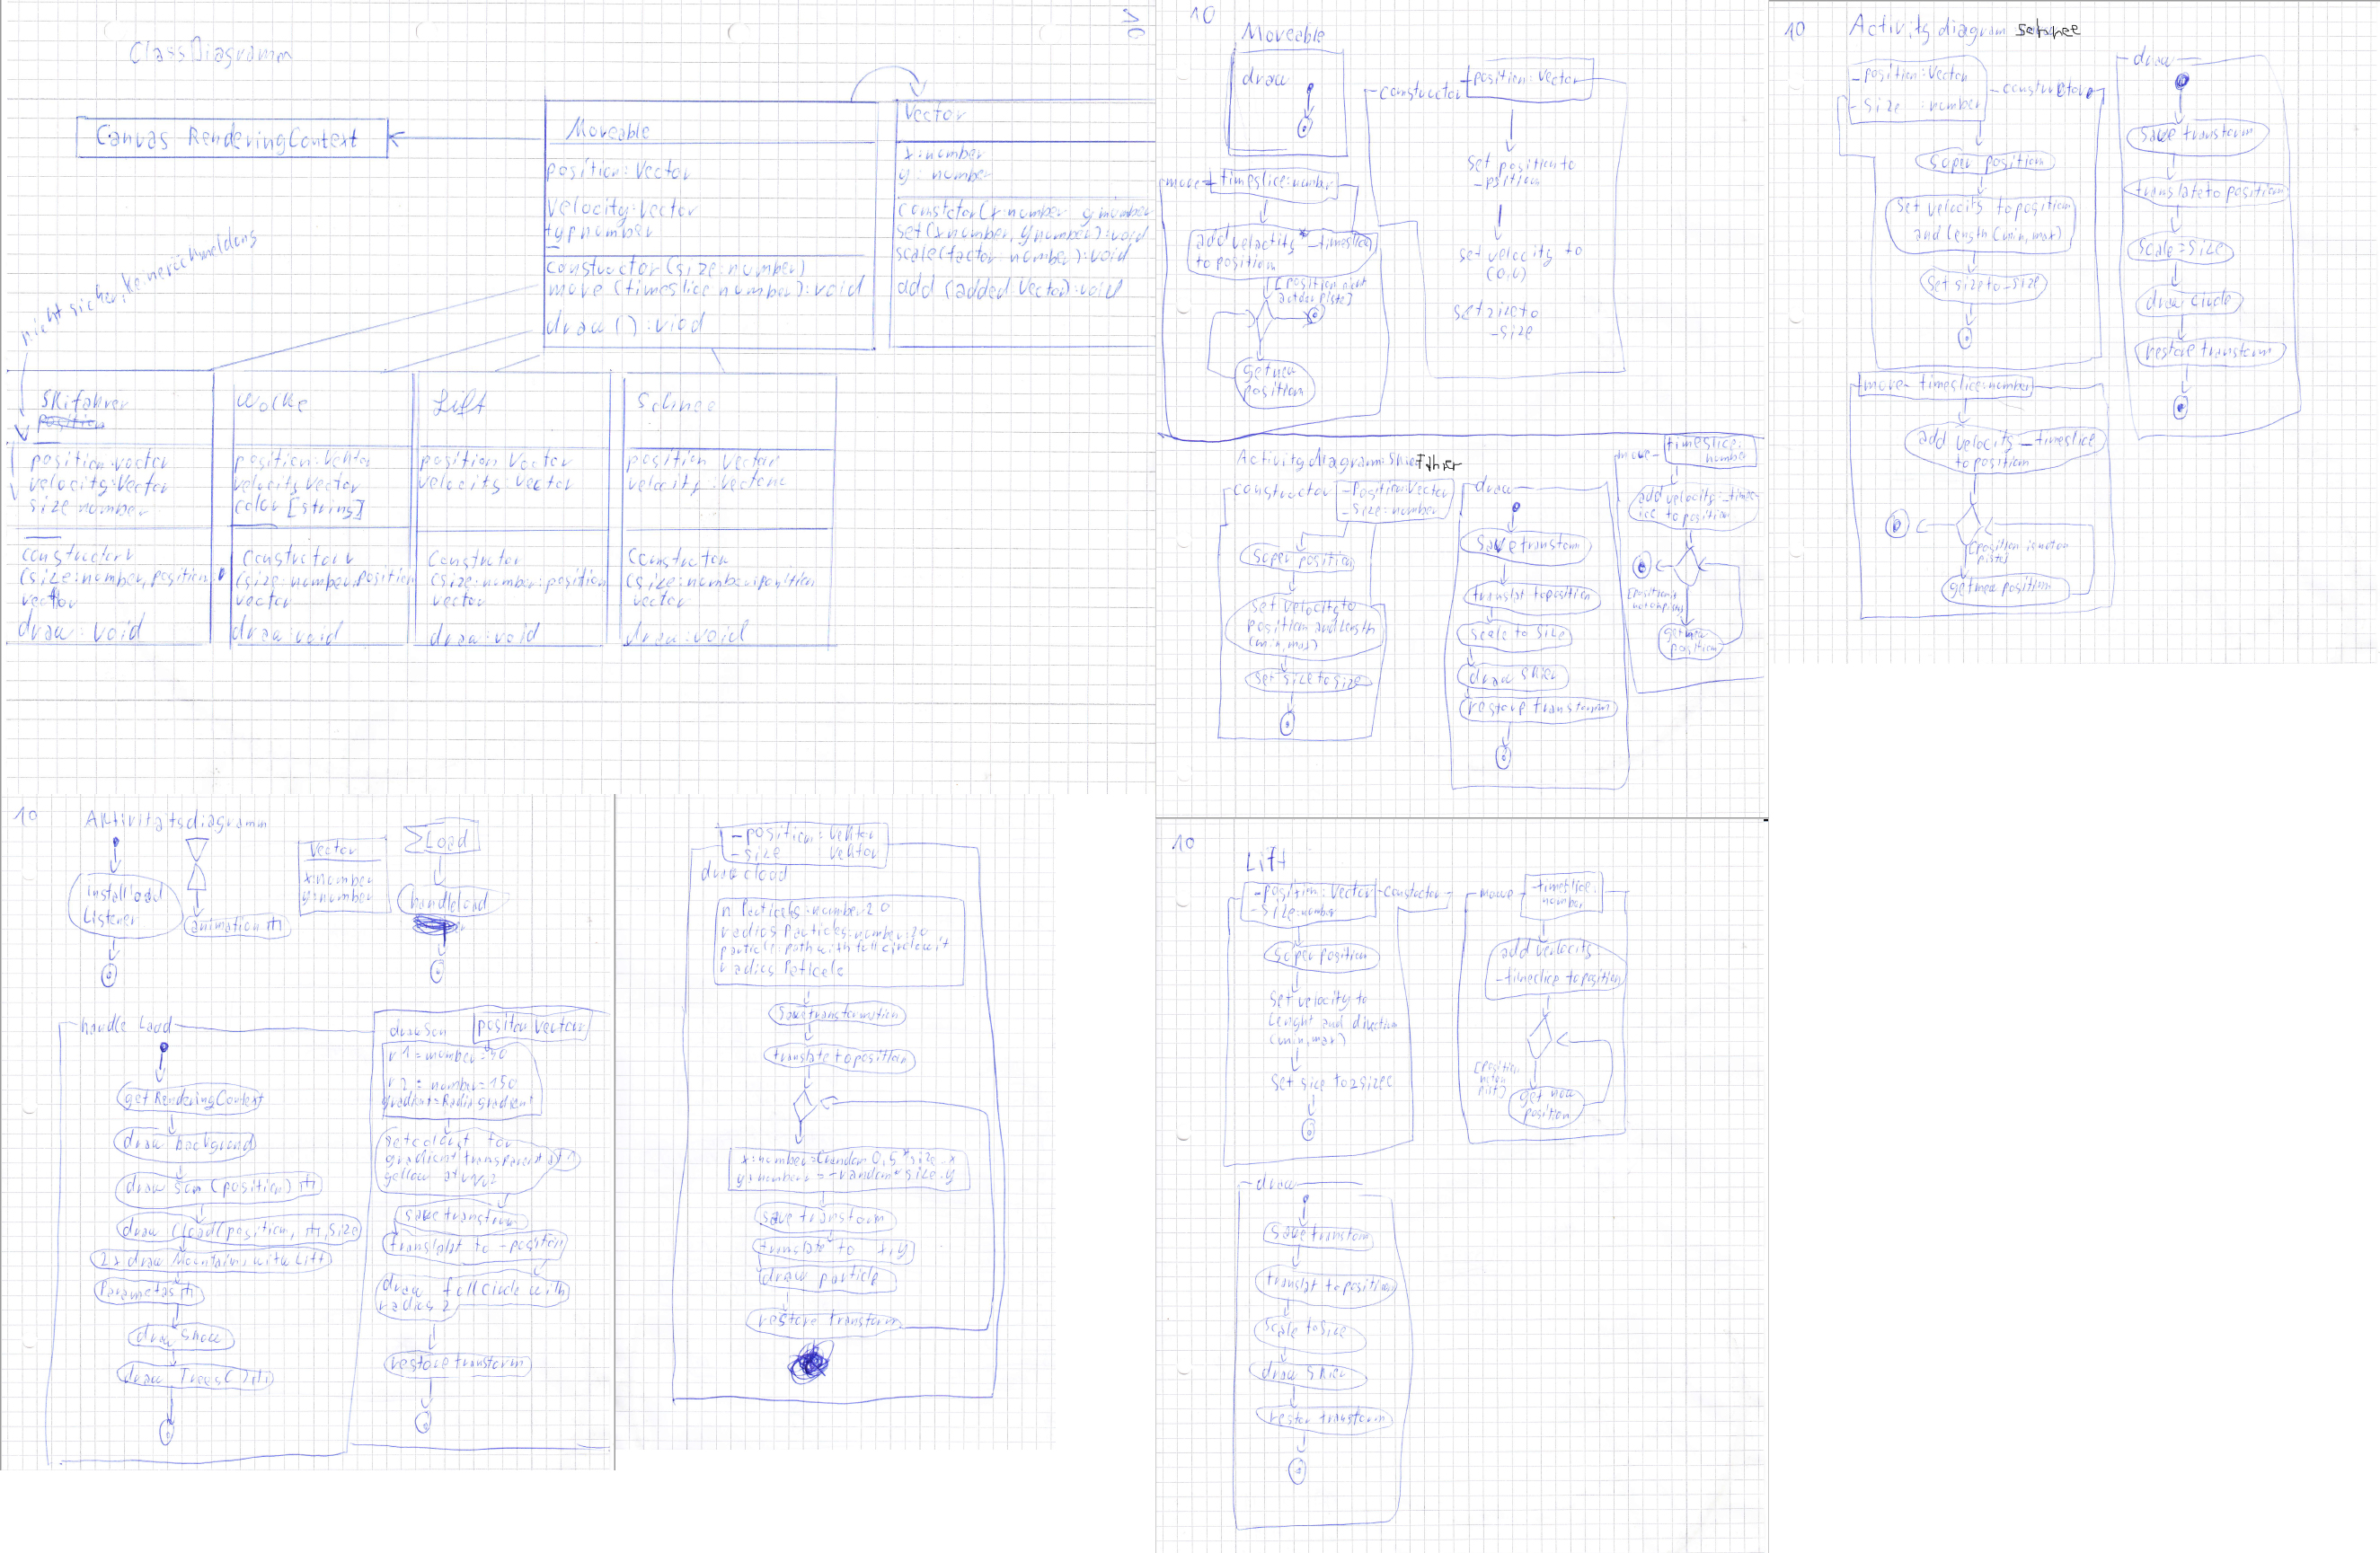 10
ClassDiagramm
Canvas RenderingContext
Moveable
position:Vector
Velocity:Vector
typnumber
constructor (size:number)
move (timeslice number):void
draw():viod
Vector
x:number
y: number
constctor(x:number y:number
set(x:number, y number):void
scale(factor number):void
add (added Vector):void
nicht sicher,
Skifahrer
position:vector
velocity:Vector
size number
constructor
(size:number, position:
vector
draw:void
Wolke
position:Vektor
velocity Vector
color [string]
Constructor
(size:number,position
vector
draw:void
Lift
position Vector
velocity:Vector
Constructor
(size:number:position
vector
draw:void
Schnee
position Vector
velocity:Vector
Constructor
(size:number:position
vector
draw:void
10
Moveable
draw
move
timeslice:number
add velocity*_timeslice
to position
[position not
get new
position
constructor
position:Vector
set position to
_position
set velocity to
(0,0)
set size to
_size
Activity diagram:
constructor
-Position:Vector
-Size:number
Super position
set velocity to
position and length
(min,max)
set size to size
draw
Save transform
translat to position
scale to size
draw skier
restore transform
move
timeslice:
number
add velocity:_times-
ice to position
get new
position
10
Activity diagram
-position:Vector
-size :number
constructor
super position
set velocity to position
and length (min,max)
set size to _size
move timeslice:number
add velocity_timeslice
to position
get new position
draw
Save transform
translate to position
scale=size
draw circle
restore transform
10
Aktivitätsdiagramm
install load
Listener
animation
Vector
x:number
y:number
Load
handleload
handle Load
get RenderingContext
draw background
draw Sun (position)
draw Cload(position, size
2x draw Mountains with Lift
draw Snow
draw Trees
draw Sun
position Vector
r1=number=50
r2:number=150
gradient=Radialgradient
gradient transparent at
save transform
translat to -position
draw full circle with
radios 2
restore transform
-position:Vektor
-size Vektor
draw cload
n Particals:number 20
radios Particles:number:20
particle:path with full circle wit
radios Particele
save transformation
translate to position
x:number=(random 0,5*size.x
y:number=-random*size.y
save transform
translate to x,y
draw particle
restore transform
10
Lift
-position:Vector
-size:number
Constuctor
super position
Set velocity to
Lenght and direction
(min,max)
move
timeslice:
number
add velocity
-timeslice to position
get new
position
draw
Save transform
translat to position
Scale to size
draw Skier
restor transform